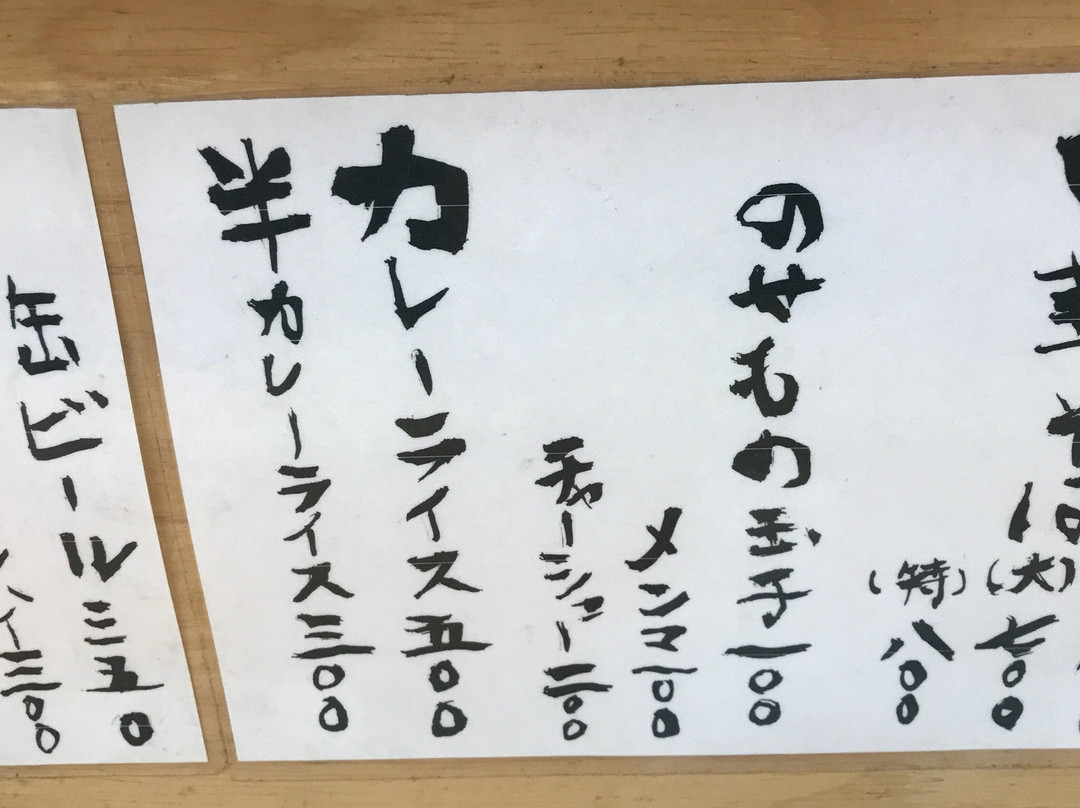 (大)七〇〇
(特)八〇〇
のせもの玉子一〇〇
メンマ一〇〇
チャーシュー二〇〇
カレーライス五〇〇
半カレーライス三〇〇
缶ビール三五〇
イ三〇〇